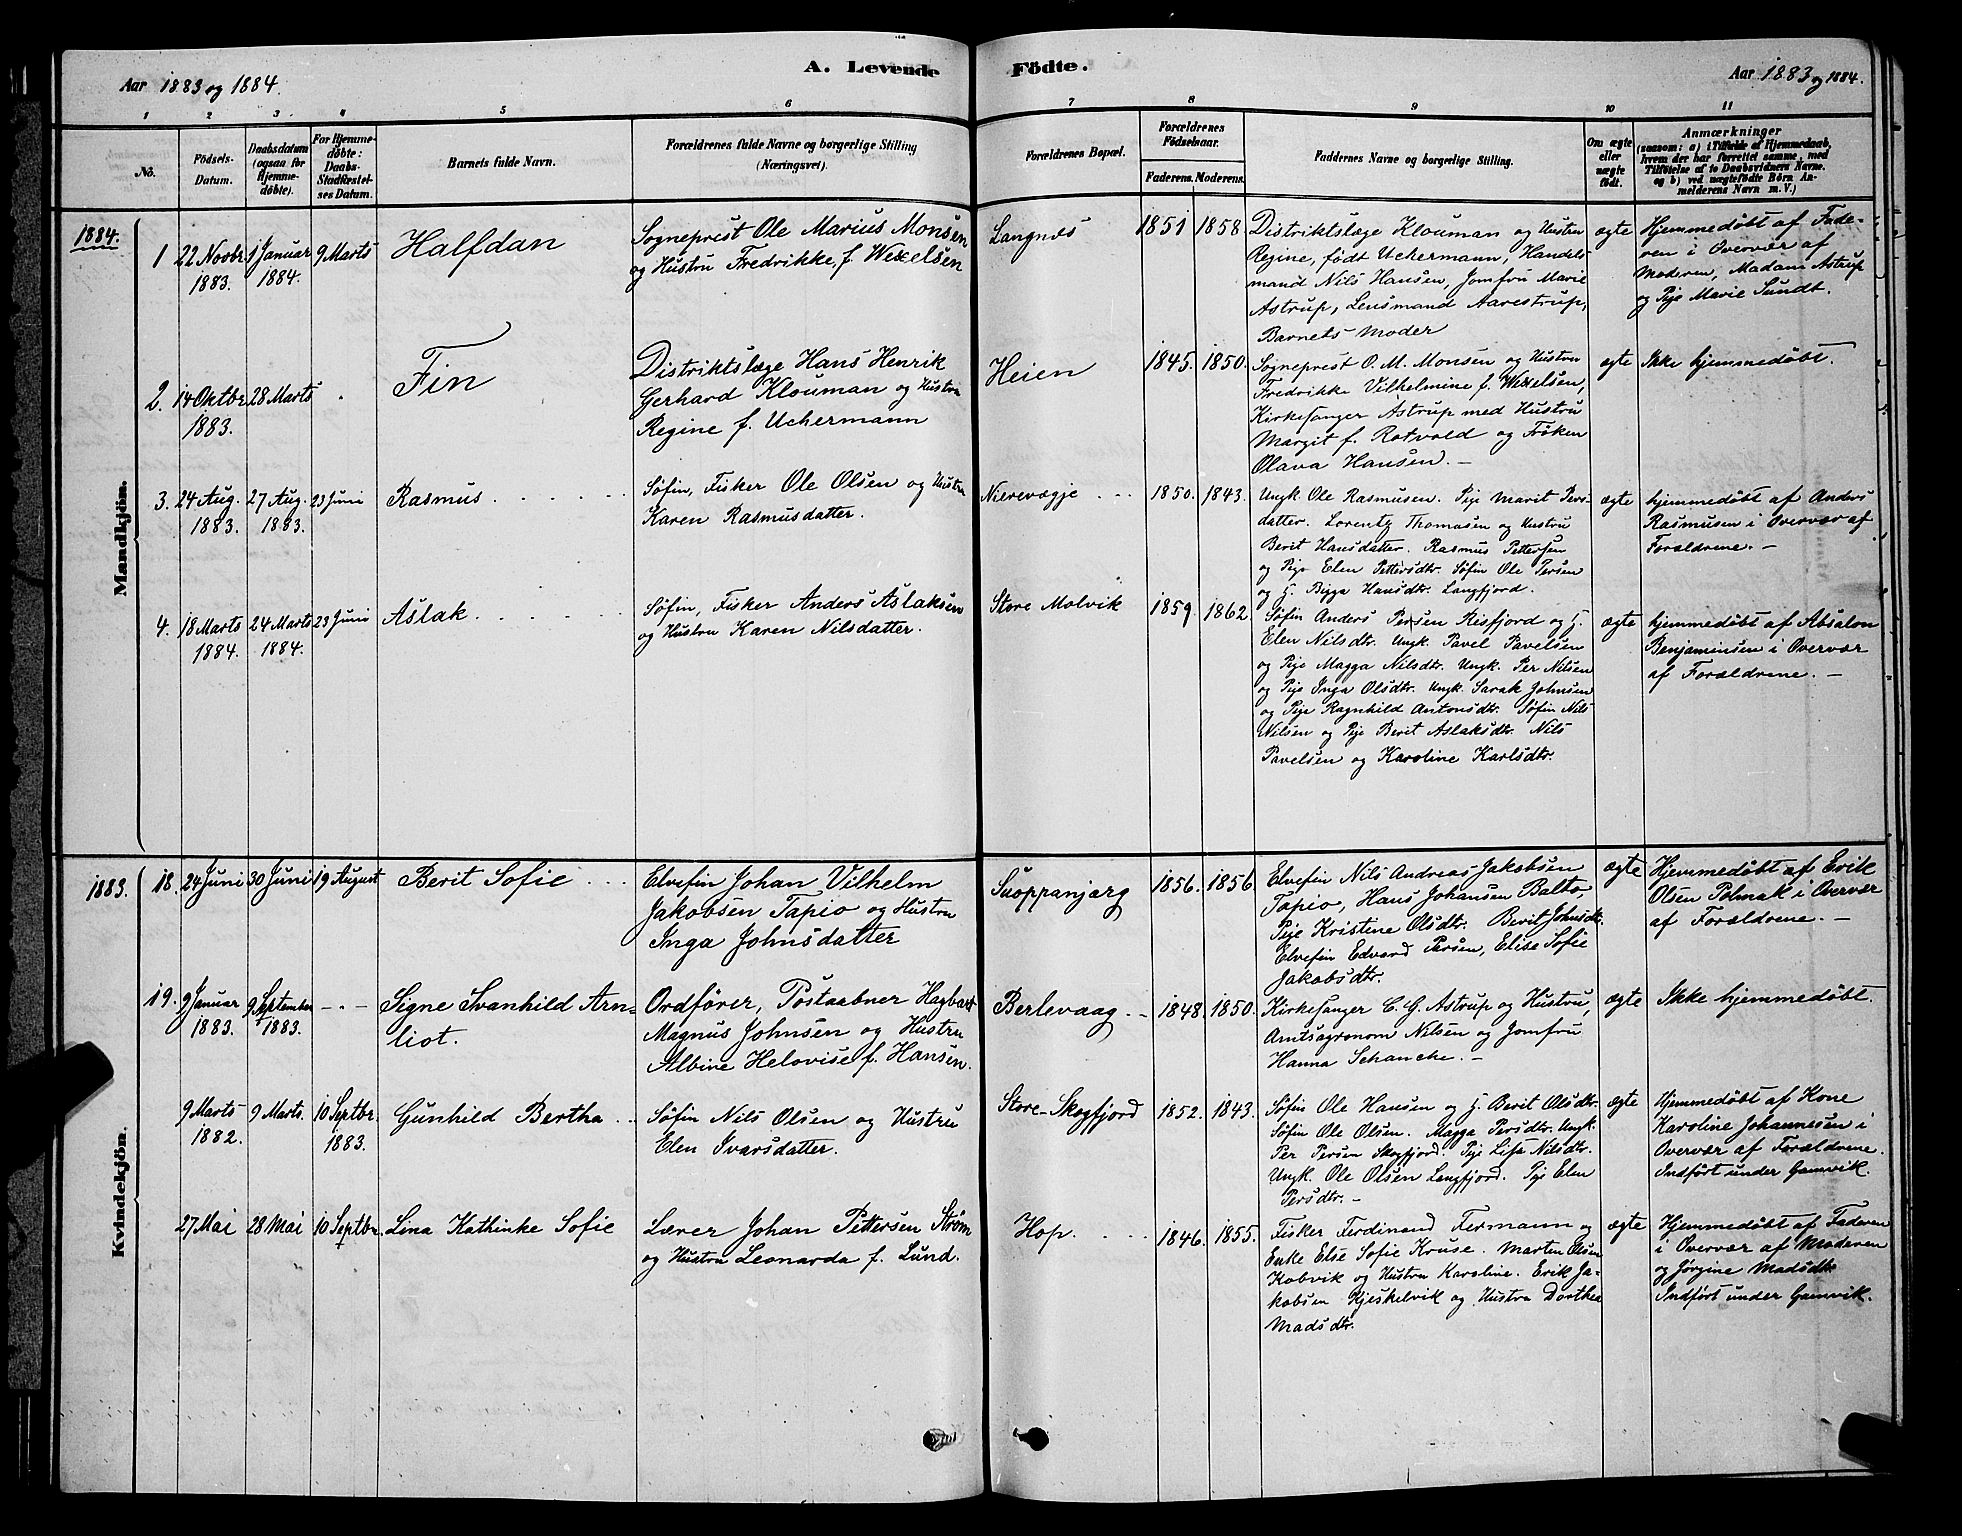 Aar 1883 og 1884.
A. Levende Födte.
Aar 1883 og 1884.
1 2 3 4 5 6 7 8 9 10 11
No.
Födsels-
Datum.
Daabsdatum
(ogsaa for
Hjemme-
döbte).
For Hjemme-
döbte:
Daabs-
Stadfæstel-
ses Datum.
Barnets fulde Navn.
Forældrenes fulde Navne og borgerlige Stilling
(Næringsvei).
Forældrenes Bopæl.
Forældrenes
Födselsaar.
Faderens. Moderens.
Faddernes Navne og borgerlige Stilling.
Om ægte
eller
uægte
födt.
Anmærkninger
(saasom: a) i Tilfælde af Hjemmedaab,
hvem der har forrettet samme, med
Tilföielse af to Daabsvidners Navne,
og b) ved uægtefödte Börn An-
melderens Navn m. V.)
Mandkjön.
1884.
1 22 Novbr. 1883. 1 Januar 1884. 9 Marts
Halfdan
Sogneprest Ole Marius Monsen
og Hustru Fredrikke, f. Wexelsen
Langnæs
1851 1858
Distriktslæge Klouman og Hustru
Regine, født Uchermann, Handels
mand Nils Hansen, Jomfru Marie
Astrup, Lensmand Aarestrup,
Barnets Moder
ægte
Hjemmedøbt af Fade-
ren i Overvær af
Moderen, Madam Astrup
og Pige Marie Sundt.
2. 14 Oktbr. 1883. 28 Marts
Fin
Distriktslæge Hans Henrik
Gerhard Klouman og Hustru
Regine f. Uchermann
Heien
1845. 1850.
Sogneprest O. M. Monsen og Hustru
Fredrikke Vilhelmine f. Wexelsen,
Kirkesanger Astrup med Hustru
Margit f. Rotvold og Frøken
Olava Hansen. —
ægte
Ikke hjemmedøbt.
3. 24 Aug. 1883. 27 Aug. 1883. 23 Juni
Rasmus
Søfin, Fisker Ole Olsen og Hustru
Karen Rasmusdatter.
Nierevægje
1850. 1843.
Ungk. Ole Rasmusen. Pige Marit Pers-
datter. Lorentz Thomasen og Hustru
Berit Hansdatter. Rasmus Pettersen
og Pige Elen Pettersdtr. Søfin Ole Persen
og H. Bigga Hansdtr. Langfjord.
ægte
hjemmedøbt af Anders
Rasmusen i Overvær af
Forældrene. —
4. 18 Marts 1884. 24 Marts 1884. 23 Juni
Aslak
Søfin, Fisker Anders Aslaksen
og Hustru Karen Nilsdatter.
Store Molvik
1859. 1862
Søfin Anders Persen Risfjord og H.
Elen Nilsdtr. Ungk. Pavel Pavelsen
og Pige Magga Nilsdtr. Ungk. Per Nilsen
og Pige Inga Olsdtr. Ungk. Sarak Johnsen
og Pige Ragnhild Antonsdtr. Søfin Nils
Nilsen og Pige Berit Aslaksdtr. Nils
Pavelsen og Karoline Karlsdtr.
ægte
hjemmedøbt af Absalon
Benjaminsen i Overvær
af Forældrene. —
Kvindekjön.
1883.
18. 24 Juni 30 Juni 19 August
Berit Sofie
Elvefin Johan Vilhelm
Jakobsen Tapio og Hustru
Inga Johnsdatter
Suoppanjarg
1856. 1856
Elvefin Nils Andreas Jakobsen
Tapio, Hans Johansen Balto,
Pige Kristine Olsdtr. Berit Johnsdtr.
Elvefin Edvard Persen, Elise Sofie
Jakobsdtr.
ægte
Hjemmedøbt af Erik
Olsen Polmak i Overvær
af Forældrene. —
19. 9 Januar 1883. 9 September 1883. - - -
Signe Svanhild Arn-
liot.
Ordfører, Postaabner Hagbart
Magnus Johnsen og Hustru
Albine Helovise f. Hansen.
Berlevaag
1848. 1850.
Kirkesanger C. G. Astrup og Hustru,
Amtsagronom Nilsen og Jomfru
Hanna Schanche. —
ægte
Ikke hjemmedøbt.
9 Marts 1882. 9 Marts. 10 Septbr. 1883.
Gunhild Bertha
Søfin Nils Olsen og Hustru
Elen Ivarsdatter.
Store-Skogfjord
1852. 1843.
Søfin Ole Hansen og H. Berit Olsdtr.
Søfin Ole Olsen. Magga Persdtr. Ungk.
Per Persen Skogfjord. Pige Lisa Nilsdtr.
Ungk. Ole Olsen Langfjord. Pige Elen
Persdtr. —
ægte
Hjemmedøbt af Kone
Karoline Johannesen i
Overvær af Forældrene.
Indført under Gamvik.
27 Mai 28 Mai 10 Septbr.
Lina Kathinke Sofie
Lærer Johan Pettersen Strøm
og Hustru Leonarda f. Lund.
Hop.
1846. 1855.
Fisker Ferdinand Fermann og
Enke Else Sofie Kruse. Martin Olsen
Kobvik og Hustru Karoline. Erik Ja-
kobsen Kjeskelvik og Hustru Dorthea
Madsdtr.
ægte
Hjemmedøbt af Faderen
i Overvær af Moderen
og Jørgine Madsdtr.
Indført under Gamvik.